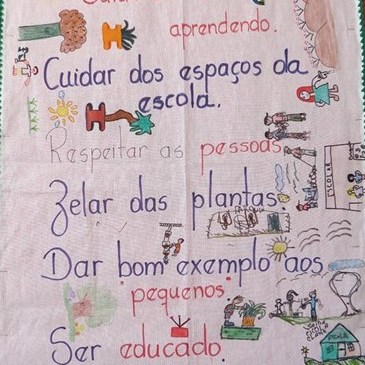 aprendendo.
Cuidar dos espaços da
escola.
Respeitar as pessoas
Zelar das plantas.
Dar bom exemplo aos
pequenos.
Ser educado.
ESCOLAR